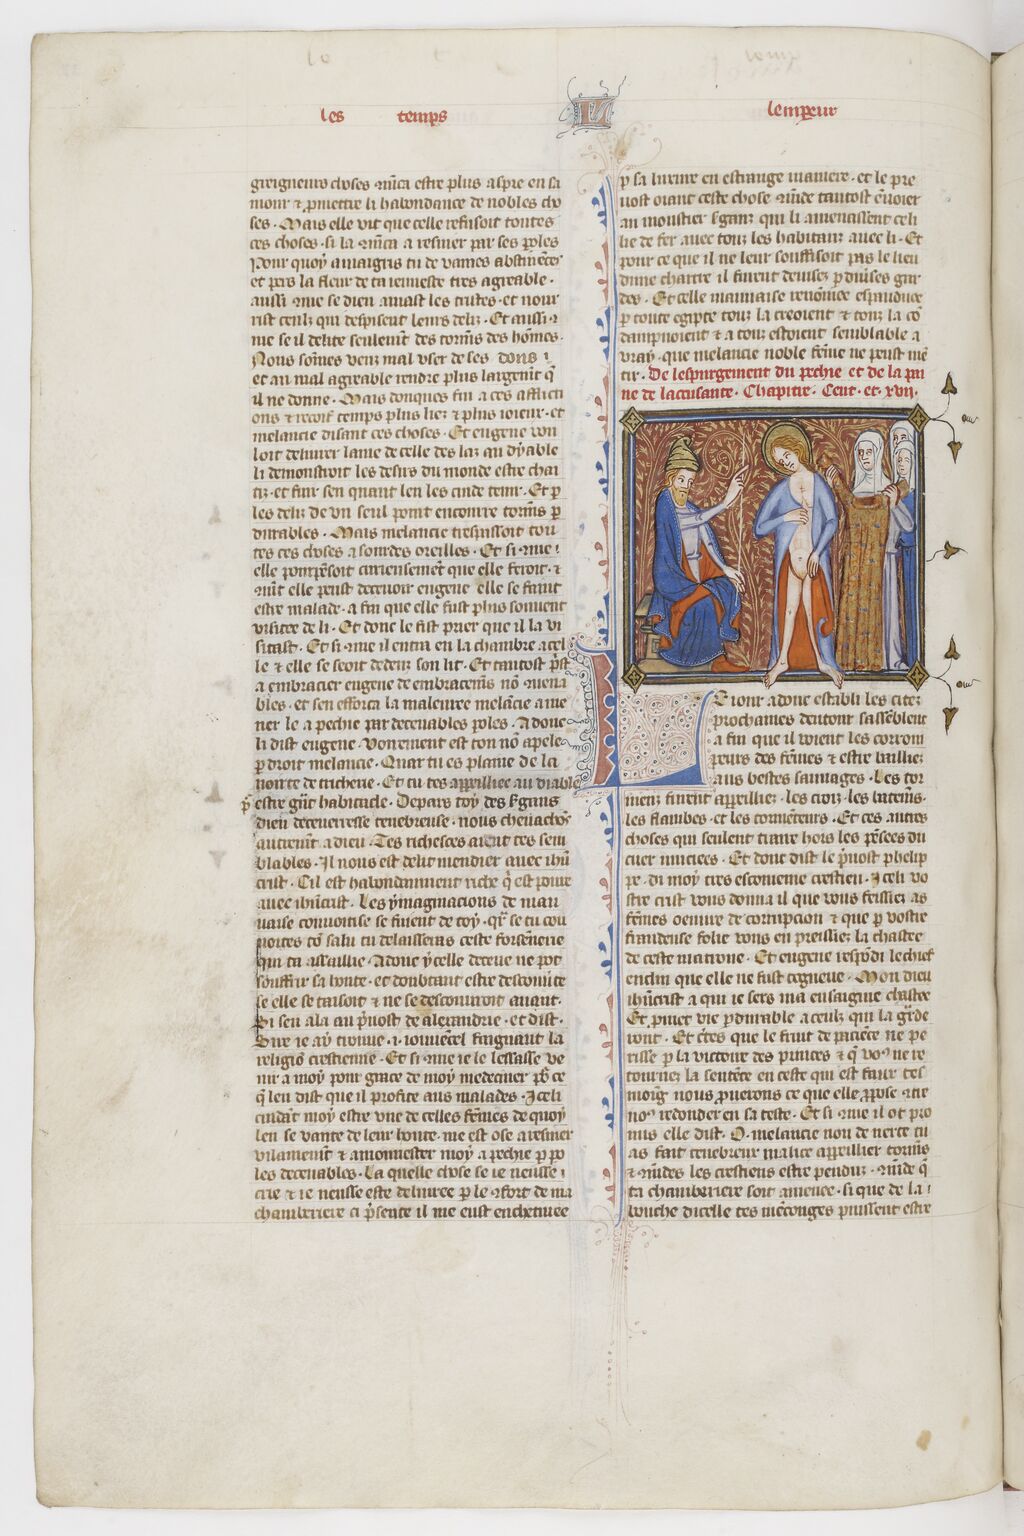 les temps
L
lempeur
greigneurs choses ⁊ m̃ca estre plus aspre en sa
mour ⁊ p̃mettre li habondance de nobles cho
ses · Mais elle vit que celle refusoit toutes
ces choses · si la m̃ca a resner par ses p̃oles
Pour quoy amaigris tu de vaines abstinẽces
et pers la fleur de ta ieunesse tres agreable ·
aussi ⁊me se dieu amast les tristes · et nour
rist ceulz qui despisent leurs deliz · Et aussi ⁊
me se il delite seulemẽt des tormẽs des hõmes ·
Nous sõmes venz mal vser de ses dons ⁊
et au mal agreable rendre plus largemẽt q̃
il ne donne · Mais donques fui a ces afflicti
ons ⁊ recoif temps plus liez ⁊ plus ioieux · et
melancie disant ces choses · Et eugene vou
loit deliurer lame de celle des laz au dyable
li demonstroit les desirs du monde estre chai
tiz · et fuir sen quant len les cuide tenir · Et p̱
les deliz de vn seul point encourre tormẽs p̱
durables · Mais melancie trespassoit tou
tes ces choses a sourdes oreilles · Et si ⁊me ⁊
elle pourpẽsoit curieusemẽt que elle feroit · ⁊
⁊mẽt elle peust decevoir eugene elle se faint
estre malade · a fin que elle fust plus souuent
visitee de li · Et donc le fist prier que il la vi
sitast · Et si ⁊me il entra en la chambre a cel
le ⁊ elle se seoit dedenz son lit · Et tantost p̃st
a embracier eugene de embracemẽs nõ ⁊uena
bles · et sen efforca la maleuree melãcie a me
ner le a pechie par decevables p̱oles · Adonc
li dist eugene · Voirement est ton nõ apele
p̱ droit melancie · Quar tu es plaine de la
noirte de tricherie · Et tu tes appeilliee au diable
p̱ estre gñt habitacle · Depars toy des s̃gans
dieu decevresse tenebreuse · nous cheuachõs
autremẽt a dieu · Tes richesces aient tes sem
blables · Il nous est delit mendier auec ih̃u
crist · Cil est habondaument riche q̃ est poure
auec ih̃ucrist · Les ymaginacions de mau
uaise couuoitise se fuient de toy · qr̃ se tu cou
uoites tõ salu tu delaisseras ceste forsenerie
qui ta assaillie · Adonc ycelle deceue ne pot
souffrir sa honte · et doubtant estre descouuite
se elle se taisoit ⁊ ne se descouuroit auant ·
Si sen ala au p̃uost de alexandrie · et dist ·
Sire ie ay trouue · i · iouuẽcel faignant la
religiõ crestienne · Et si ⁊me ie le lessasse ve
nir a moy pour grace de moy medeciner p̱ ce
q̃ len dist que il profite aus malades · Iceli
cuidãt moy estre vne de celles fẽmes de quoy
len se vante de leur honte · me est ose aresnier
vilainemt̃ ⁊ amonnester moy a pechie p̱ p̱o
les decevables · La quelle chose se ie neusse ⁊
crie ⁊ ie neusse este deliuree p̱ le ⁊fort de ma
chamberiere ci p̃sente il me eust enchetiuee
p̱ sa luxure en estrange maniere · et le pre
uost oiant ceste chose ⁊mãde tantost ẽuoier
au moustier s̃gans qui li amenassent celi
lie de fer auec touz les habitanz auec li · Et
pour ce que il ne leur souffisoit pas le lieu
dune chartre il furent deuisez p̱ diũses gar
des · Et celle mauuaise renõmee espandue
p̱ toute egipte touz la creoient ⁊ touz la cõ
dampnoient ⁊ a touz estoient semblable a
vray · que melancie noble fẽme ne peust mẽ
tir · De lespurgement du pechie et de la pai
ne de lacusante · Chapitre · Cent · et · xvij ·
Le iour adonc establi les citez
prochaines dentour sassẽblent
a fin que il voient les corrom
peurs des fẽmes ⁊ estre bailliez
aus bestes sauuages · Les tor
menz furent appeilliez · les croiz · les batemẽs ·
les flambes · et les tormẽteurs · Et ces autres
choses qui seulent traire hors les pẽsees du
cuer muciees · Et donc dist le p̃uost phelip
pe · di moy tres escomenie crestien · Iceli vo
stre crist vous donna il que vous feissiez as
fẽmes oeuure de corrupcion ⁊ que p̱ vostre
frauduse folie vous en preissiez la chastee
de ceste matrone · Et eugene respõdi le chief
enclin que elle ne fust cogneue · Mon dieu
ih̃ucrist a qui ie sers ma enseigne chastee
Et p̃met vie p̱durable a ceulz qui la gr̃de
ront · Et c̃tes que le fruit de paciẽce ne pe
risse p̱ la victoire des princes ⁊ q̃ voꝰ ne re
tournez la sentẽce en ceste qui est faux tes
moing nous p̃uerons ce que elle p̃pose ⁊tre
noꝰ redonder en sa teste · Et si ⁊me il ot pro
mis elle dist · O · melancie non de nerte tu
as fait tenebreux malice appeillier tormẽs
⁊ ⁊mãdes les crestiens estre penduz · ⁊mãde q̃
ta chamberiere soit amenee · si que de la ⁊
bouche dicelle tes mẽconges puissent estre